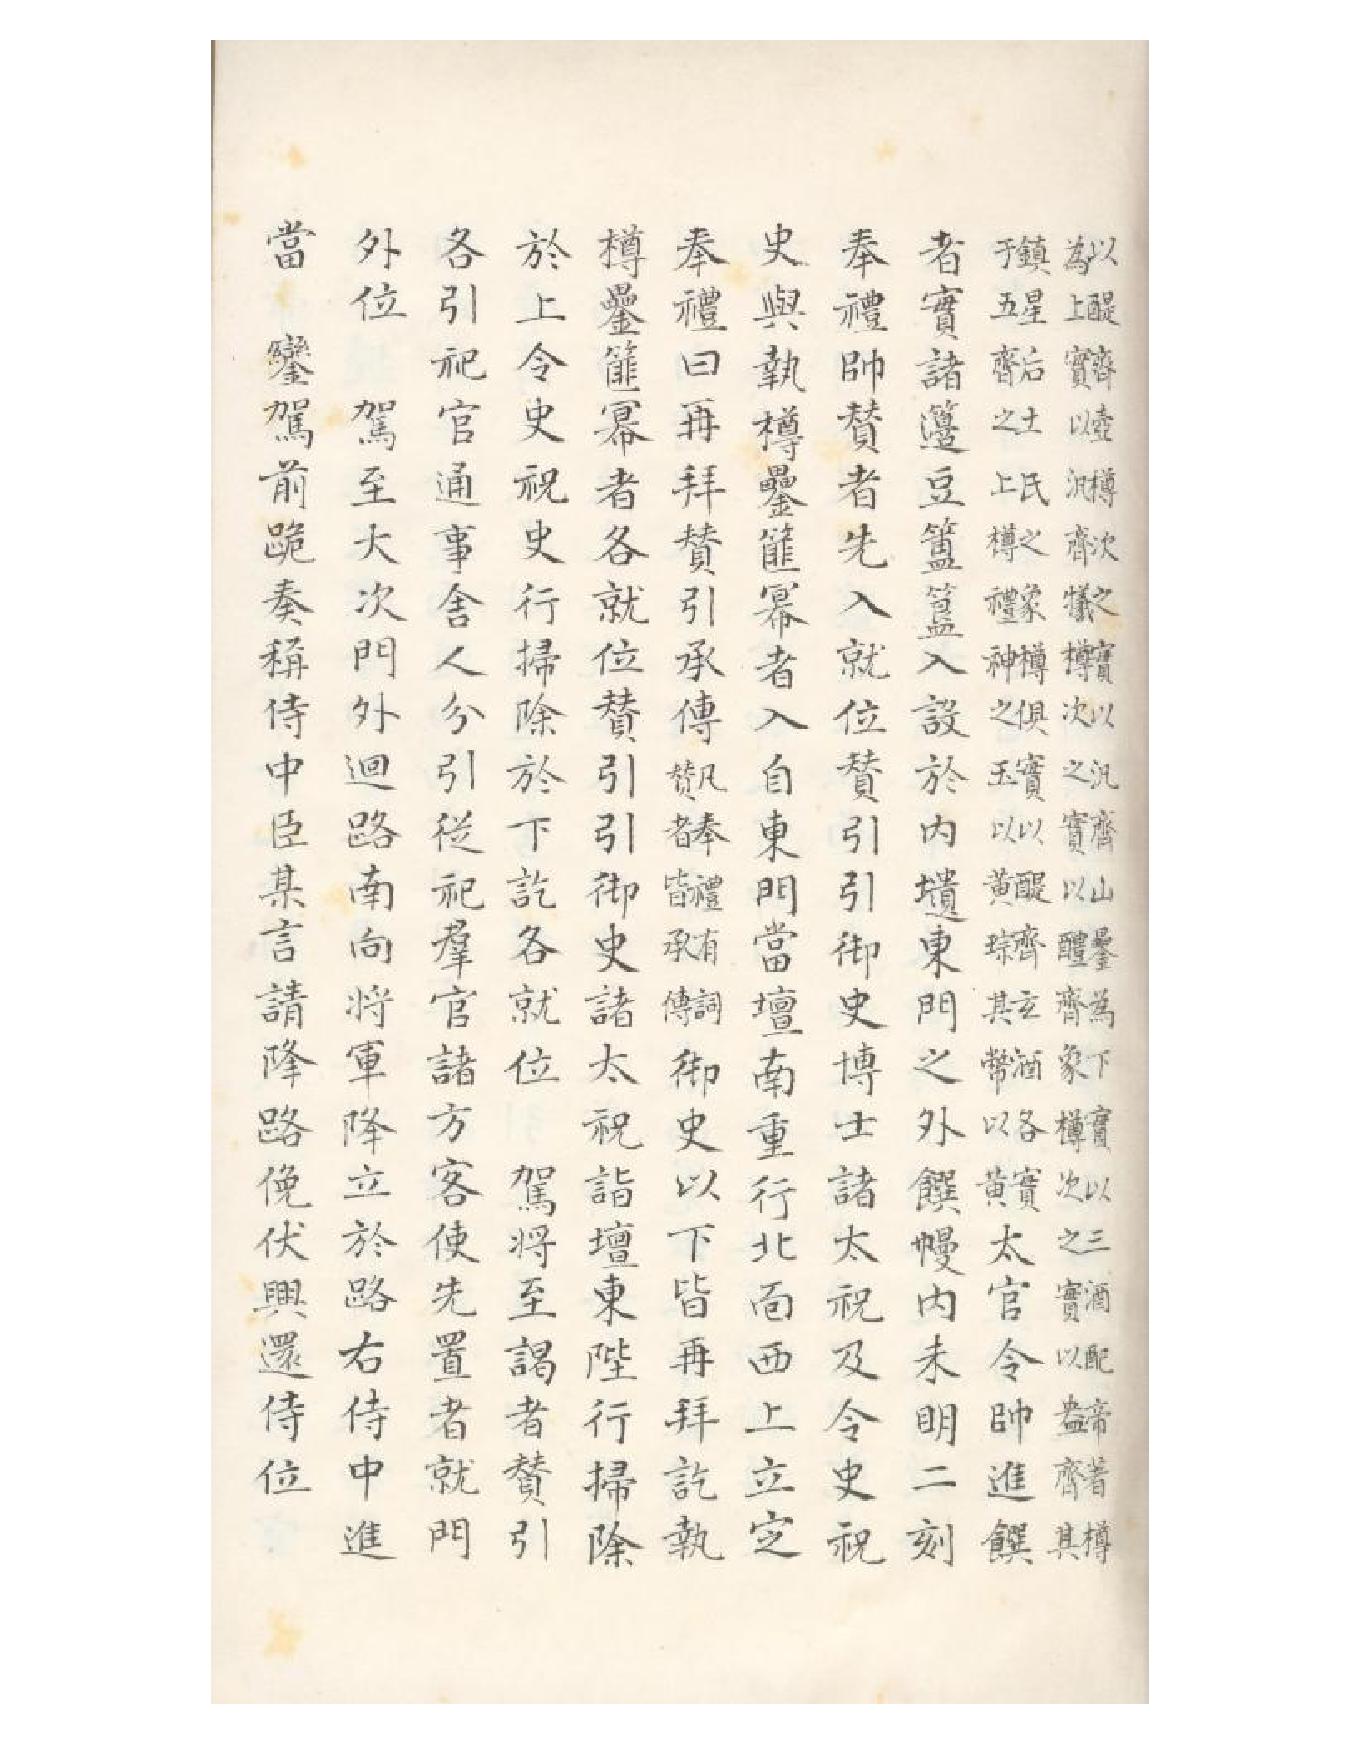 以醍齊壺樽次之實以汎齊山罍為下實以三酒配帝著樽
為上實以汎齊犧樽次之實以醴齊象樽次之實以盎齊其
鎮星后土氏之象樽俱實以醍齊玄酒各實
于五齊之上樽禮神之玉以黃琮其幣以黃
太官令帥進饌
者實諸籩豆簠簋入設於內壝東門之外饌幔內未明二刻
奉禮帥贊者先入就位贊引引御史博士諸太祝及令史祝
史與執樽罍篚冪者入自東門當壇南重行北面西上立定
奉禮曰再拜贊引承傳
凡奉禮有詞
贊者皆承傳
御史以下皆再拜訖執
樽罍篚冪者各就位贊引引御史諸太祝詣壇東陛行掃除
於上令史祝史行掃除於下訖各就位 駕將至謁者贊引
各引祀官通事舍人分引從祀羣官諸方客使先置者就門
外位 駕至大次門外迴路南向將軍降立於路右侍中進
當 鑾駕前跪奏稱侍中臣某言請降路俛伏興還侍位